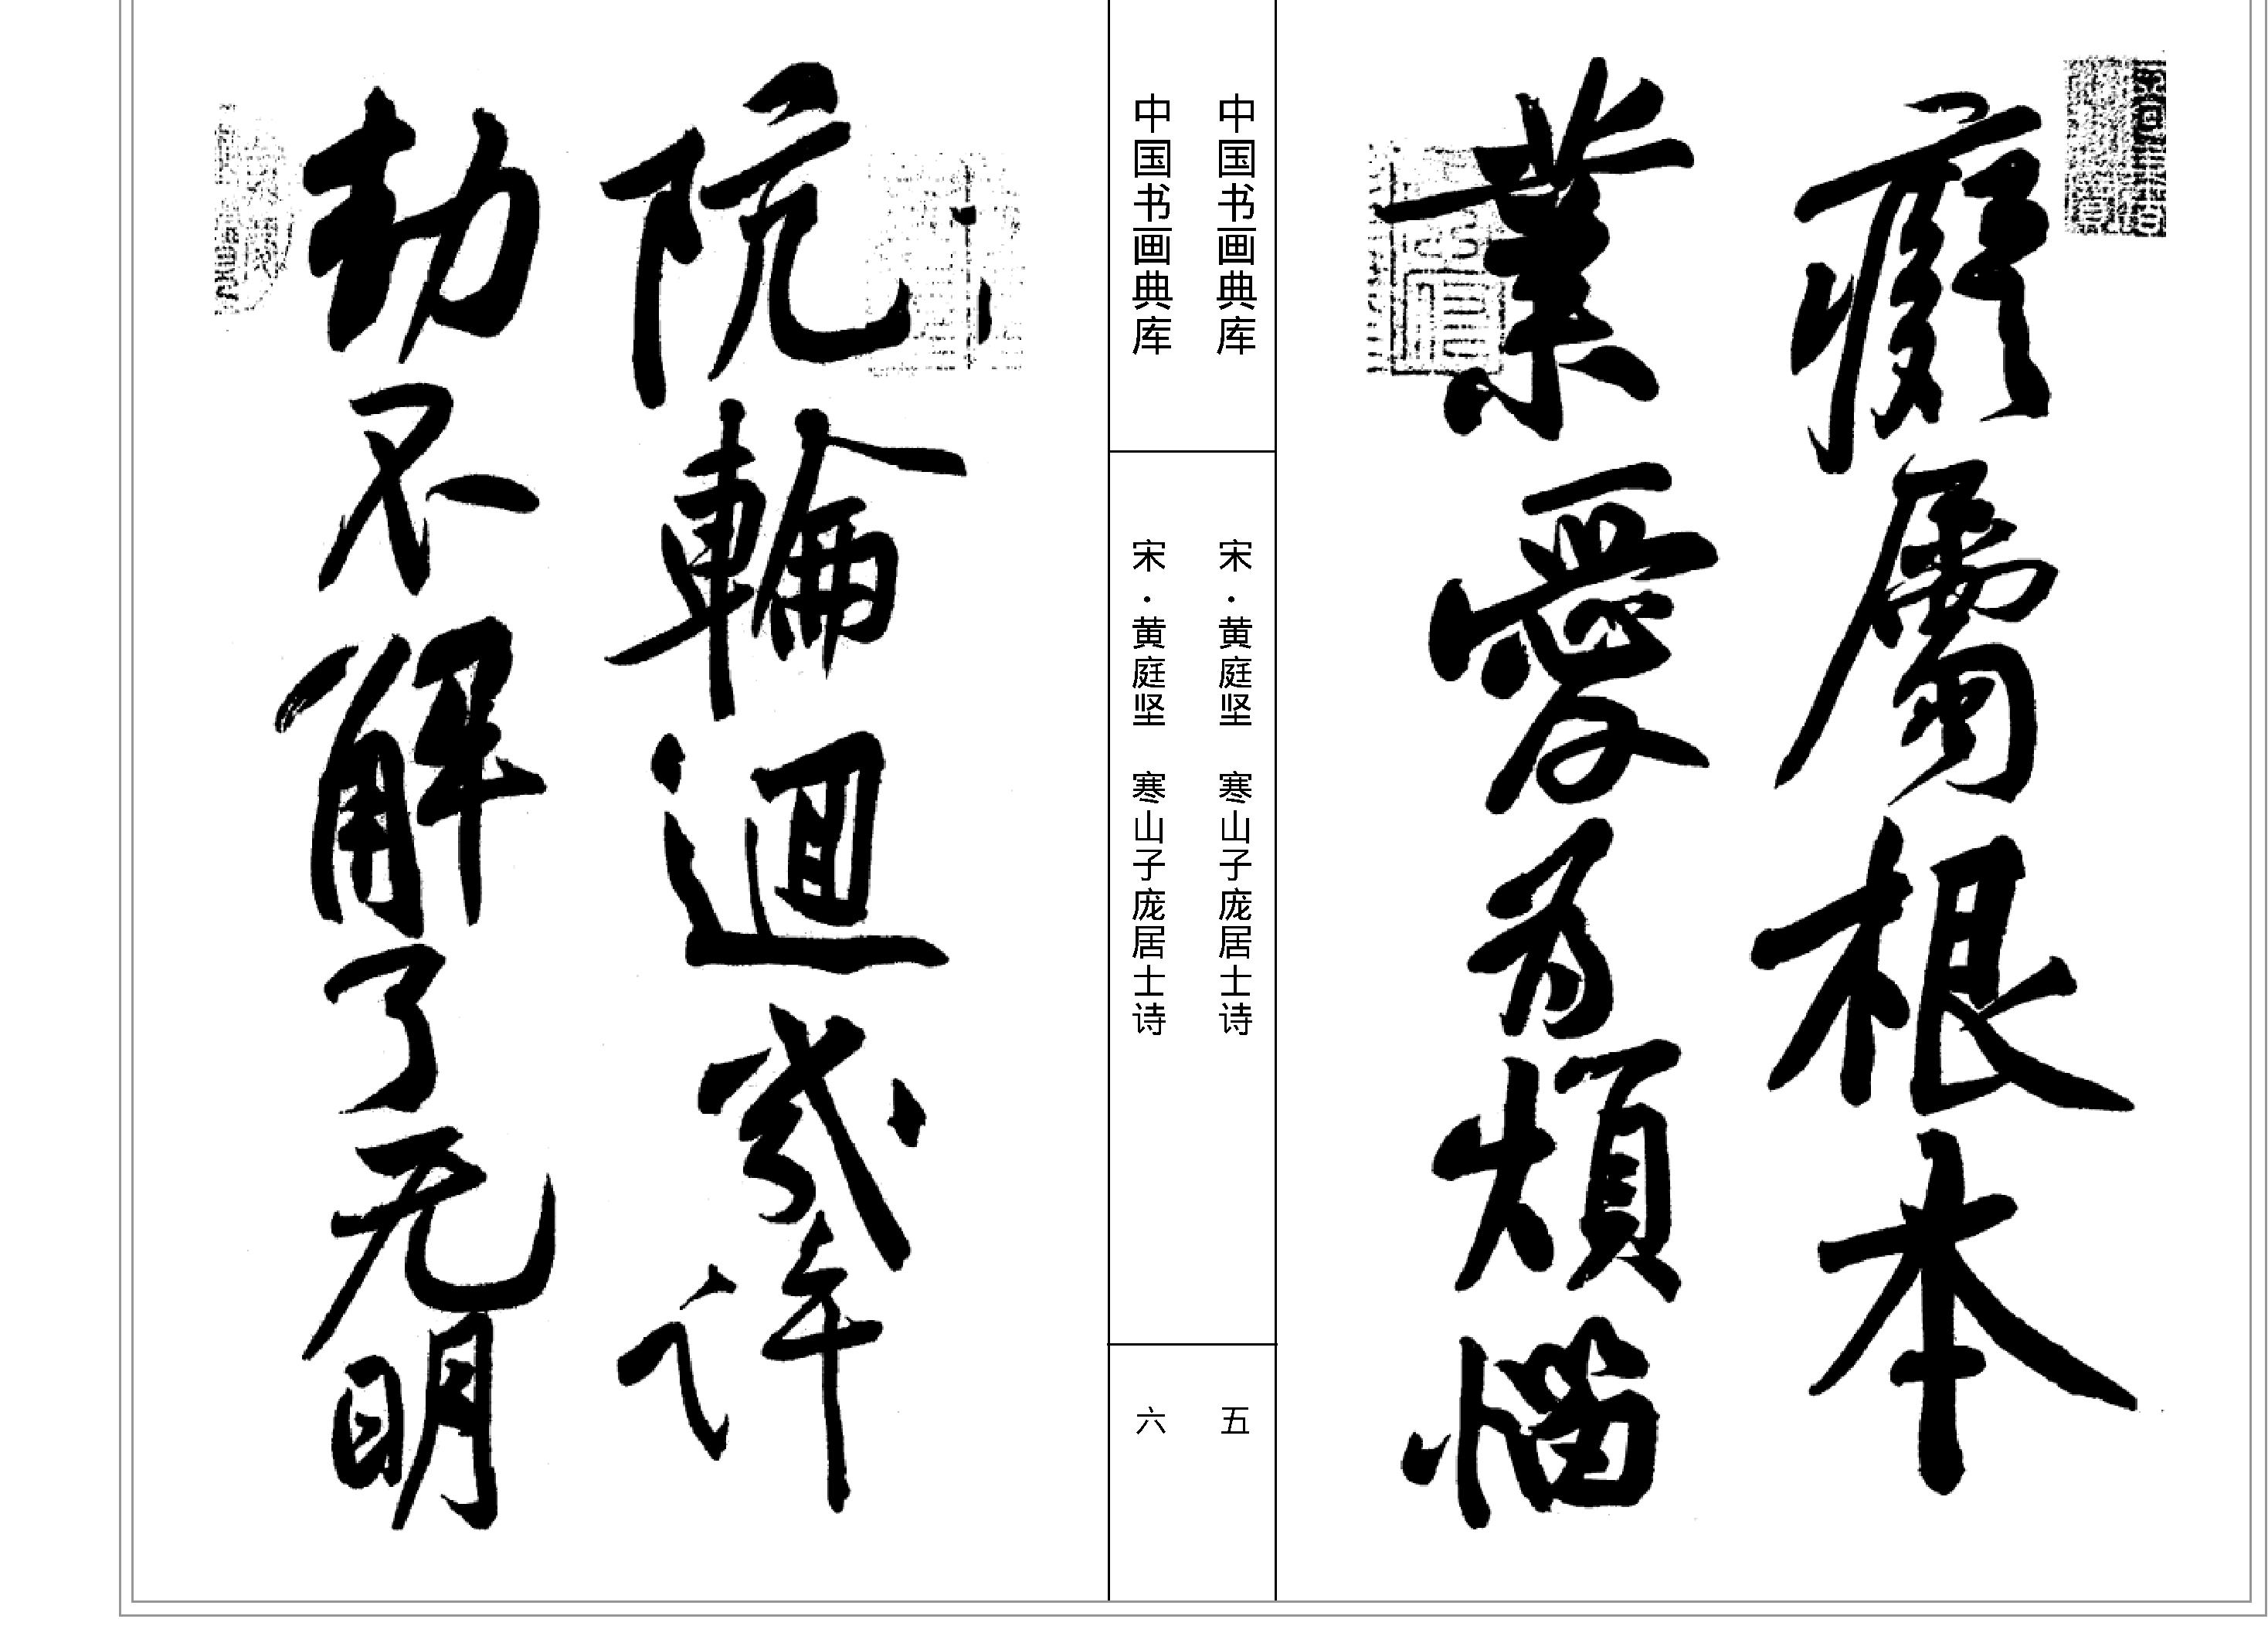 癡屬根本
業愛為煩惱
中国书画典库
宋·黄庭坚 寒山子庞居士诗
五
中国书画典库
宋·黄庭坚 寒山子庞居士诗
六
阬輪迴幾許
劫不解了无明